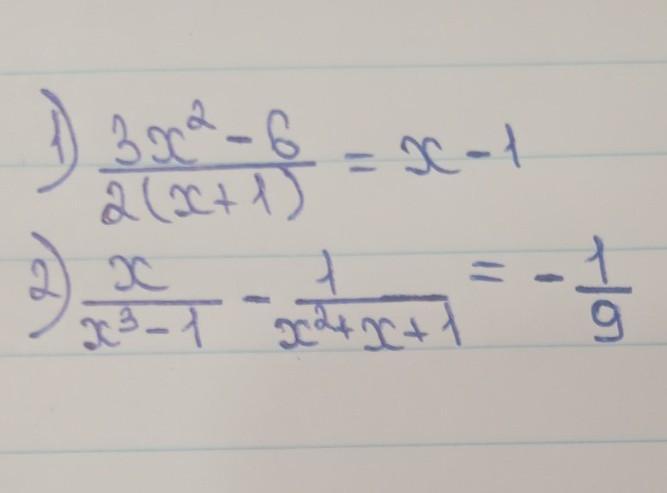 1) (3x² - 6)/(2(x+1)) = x - 1
2) x/(x³-1) - 1/(x²+x+1) = - 1/9